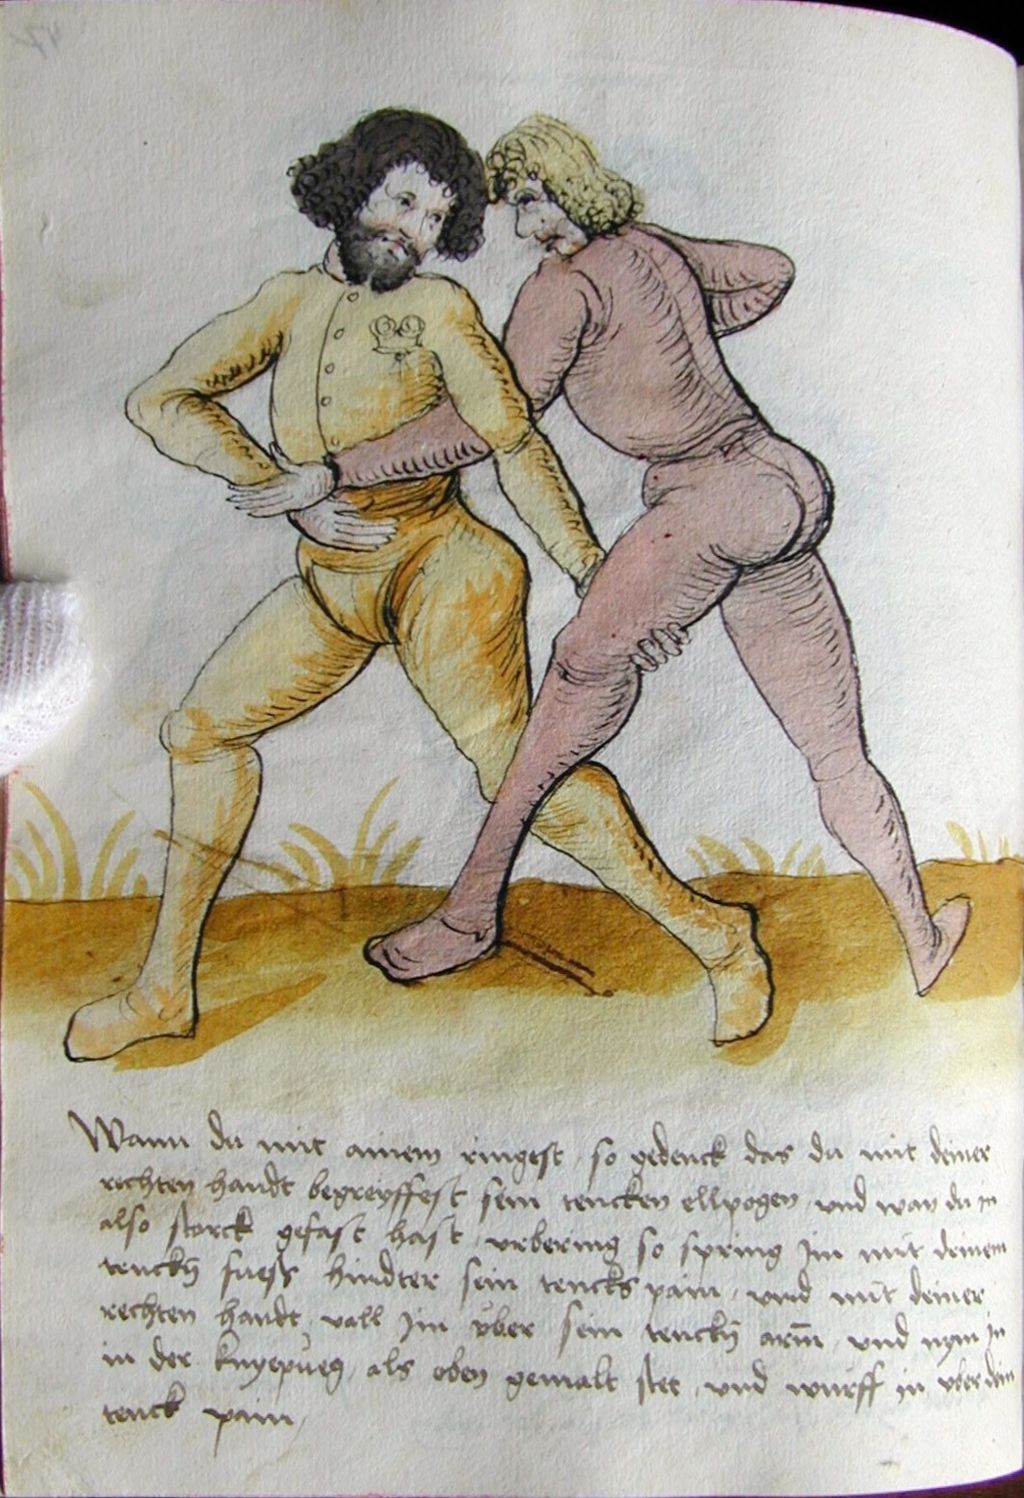 Wann du mit ainem ringest / so gedenck das du mit deiner
rechten handt begreyffest sein tencken ellpogen / und wan du in
also starck gefast hast / urbering so spring Im mit deinem
tenckn̄ fuess hindter sein tencks pain / unnd mit deiner
rechten handt vall Im über sein tenckn̄ arm̄ / und nym In
in der knyepueg / als oben gemalt stet / und würff in uber dein
tenck pain /